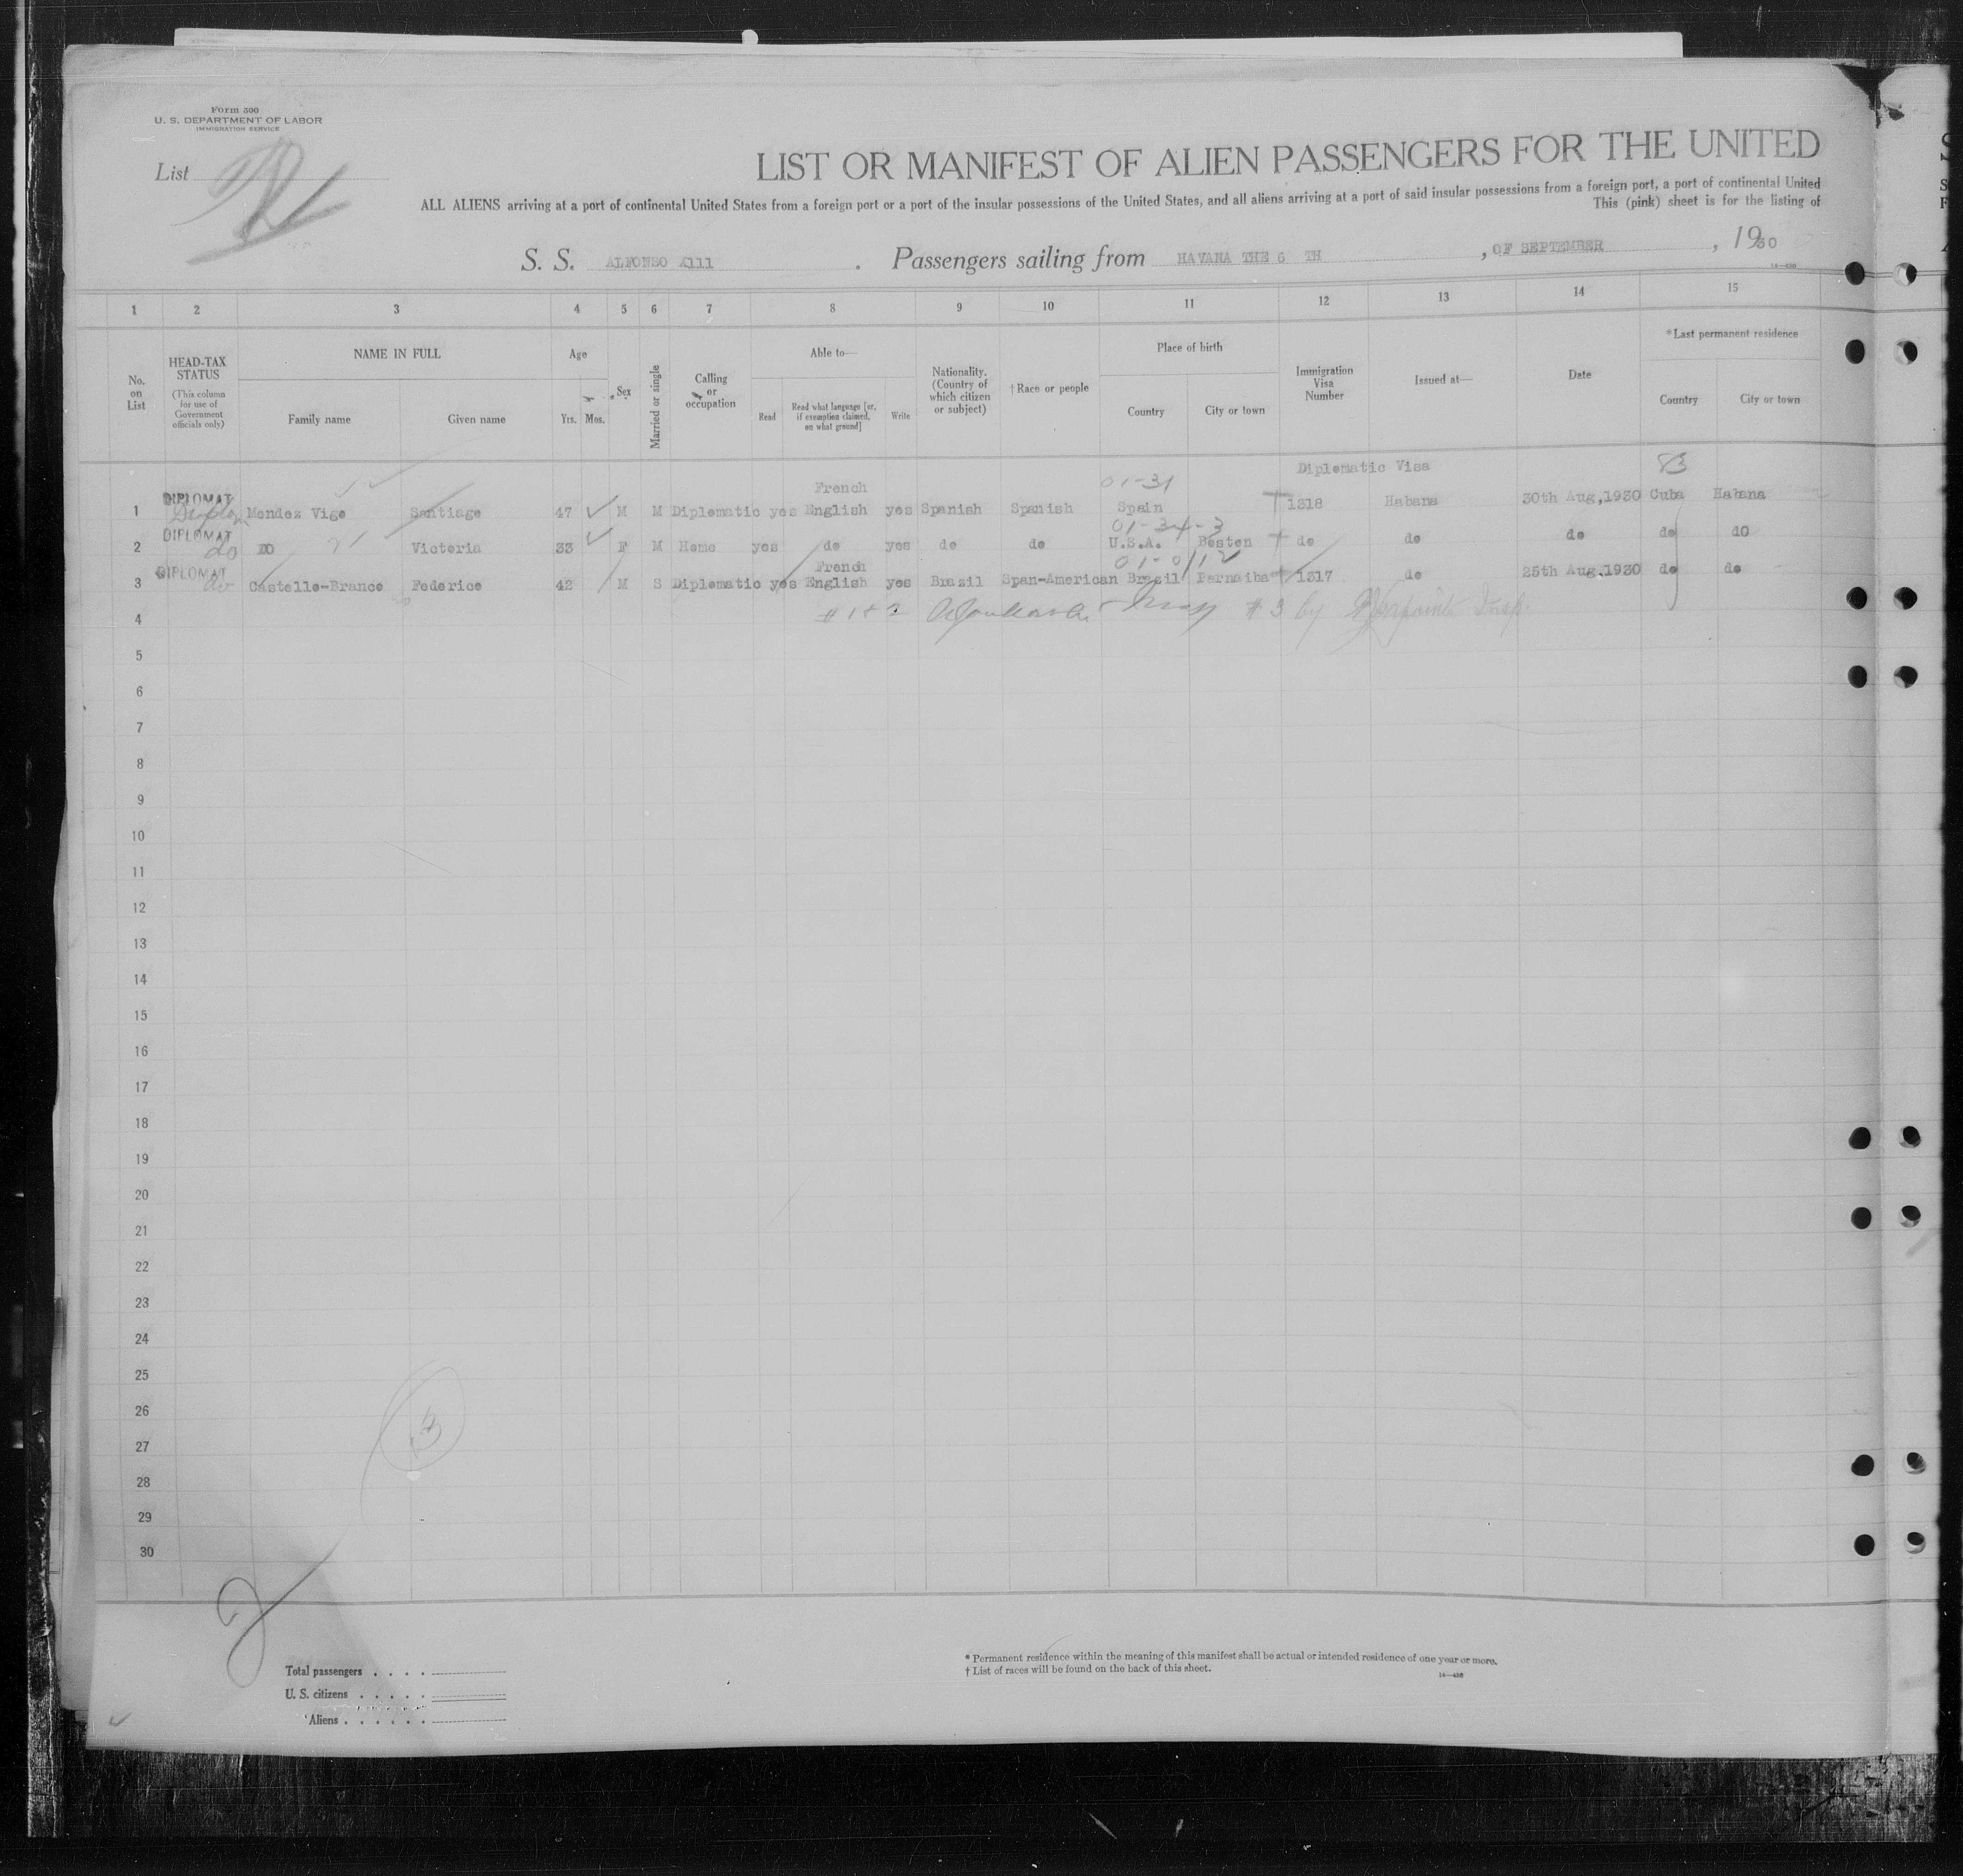 Form 500
U. S. DEPARTMENT OF LABOR
IMMIGRATION SERVICE
List
LIST OR MANIFEST OF ALIEN PASSENGERS FOR THE UNITED
ALL ALIENS arriving at a port of continental United States from a foreign port or a port of the insular possessions of the United States, and all aliens arriving at a port of said insular possessions from a foreign port, a port of continental United
This (pink) sheet is for the listing of
S. S. ALFONSO X111 . Passengers sailing from HAVANA THE 6 TH , OF SEPTEMBER , 1930
1 2 3 4 5 6 7 8 9 10 11 12 13 14 15
No. on List
HEAD-TAX STATUS
(This column for use of Government officials only)
NAME IN FULL
Family name
Given name
Age
Yrs. Mos.
Sex
Married or single
Calling or occupation
Able to—
Read
Read what language [or, if exemption claimed, on what ground]
Write
Nationality. (Country of which citizen or subject)
† Race or people
Place of birth
Country
City or town
Immigration Visa Number
Issued at—
Date
* Last permanent residence
Country
City or town
Diplomatic Visa
French 01-31
1 DIPLOMAT Mendez Vigo Santiago 47 M M Diplomatic yes English yes Spanish Spanish Spain 1318 Habana 30th Aug,1930 Cuba Habana
2 DIPLOMAT do DO Victoria 33 F M Home yes do yes do do U.S.A. Boston do do do do dO
French
3 DIPLOMAT do Castello-Branco Federico 42 M S Diplomatic yes English yes Brazil Span-American Brazil Parnaiba 1317 do 25th Aug.1930 do do
4 #3 by
5
6
7
8
9
10
11
12
13
14
15
16
17
18
19
20
21
22
23
24
25
26
27
28
29
30
Total passengers . . . .
U. S. citizens . . . . .
Aliens . . . . . .
* Permanent residence within the meaning of this manifest shall be actual or intended residence of one year or more.
† List of races will be found on the back of this sheet.